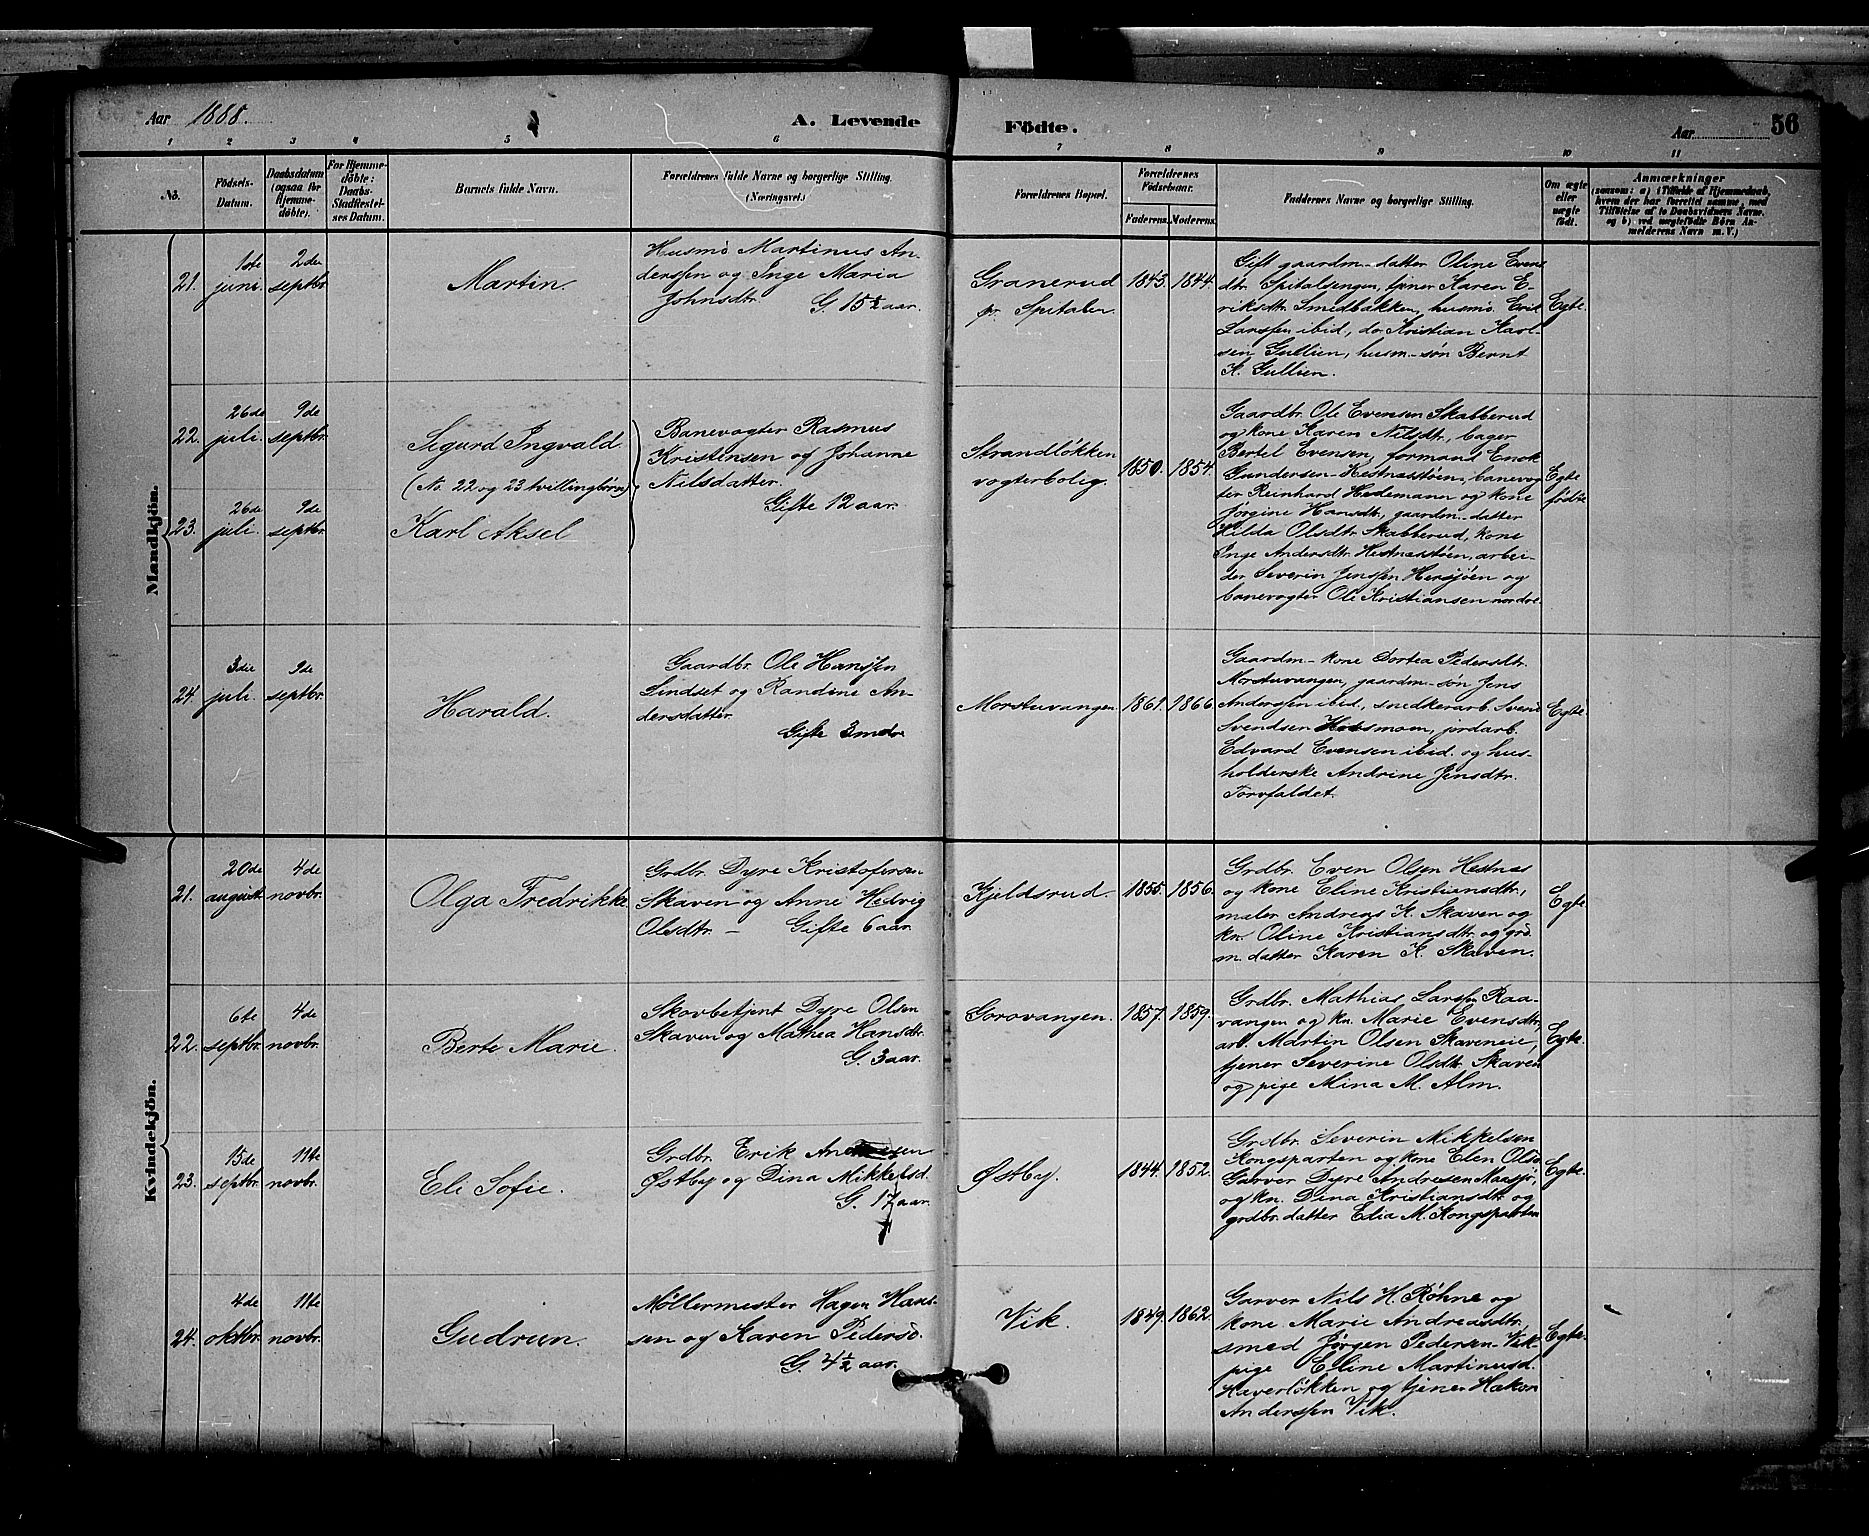 Aar 1888.
A. Levende
Födte.
Aar
56
1 2 3 4 5 6 7 8 9 10 11
No.
Födsels-
Datum.
Daabsdatum
(ogsaa for
Hjemme-
döbte).
For Hjemme-
döbte:
Daabs-
Stadfestel-
ses Datum.
Barnets fulde Navn.
Forældrenes fulde Navne og borgerlige Stilling.
(Næringsvei.)
Forældrenes Bopæl.
Forældrenes
Födselsaar.
Faderens. Moderens.
Faddernes Navne og borgerlige Stilling.
Om ægte
eller
uægte
födt.
Anmærkninger
(saasom: a) i Tilfælde af Hjemmedaab,
hvem der har forrettet samme, med
Tilföielse af to Daabsvidners Navne,
og b) ved uægtefödte Börn An-
melderens Navn m. V.)
Mandkjön.
21.
1ste
juni.
2den
septbr.
Martin.
Husmd Martinus An-
derssen og Inge Maria
Johnsdtr.
G. 15½ aar.
Granerud
pr. Spitalen.
1843. 1844.
Gift gaardm-datter Oline Evens
dtr. Spitalsengen, tjener Karen E-
riksdtr. Smedbakken, husmd. Erik
Larssen ibid, do Kristian Karl-
sen Gullien, husm-søn Bernt
K. Gullien.
Egte.
22.
26de
juli.
9de
septbr.
Sigurd Ingvald
(No. 22 og 23 tvillingbörn)
23.
26de
juli.
9de
septbr.
Karl Aksel
Banevogter Rasmus
Kristensen og Johanne
Nilsdatter.
Gifte 12 aar.
Strandløkken
vogterbolig.
1850. 1854.
Gaardbr. Ole Evensen Skabberud
og kone Karen Nilsdtr., bager
Bertel Evensen, formand Enok
Gundersen Hestnæsstøen, banevog
ter Reinhard Hedemann og kone
Jørgine Hansdtr., gaardm-datter
Hilda Olsdtr. Skabberud, kone
Inge Andersdtr. Hestnæsstøen, arbei-
der Severin Jenssen Hersjøen og
banevogter Ole Kristiansen nordre.
Egte
fødte
24.
3die
juli.
9de
septbr.
Harald.
Gaardbr. Ole Hanssen
Lindset og Randine An-
dersdatter.
Gifte 3 mdr.
Morstuvangen.
1861. 1866.
Gaardm-kone Dortea Pedersdtr.
Morstuvangen, gaardm-søn Jens
Anderssen ibid., snedkerarb. Svend
Svendsen Hosmoen, jordarb.
Edvard Evensen ibid. og hus-
holderske Andrine Jensdtr.
Torvfaldet.
Egte.
Kvindekjön.
21.
20de
august.
4de
novbr.
Olga Fredrikke
Grdbr. Dyre Kristofersen
Skaven og Anne Hedvig
Olsdtr. – Gifte 6 aar.
Kjeldsrud.
1855. 1856.
Grdbr. Even Olsen Hestnæs
og kone Eline Kristiansdtr.,
maler Andreas K. Skaven og
kn. Oline Kristiansdtr. og grd
m. datter Karen K. Skaven.
Egte.
22.
6te
septbr.
4de
novbr.
Berte Marie.
Skovbetjent Dyre Olsen
Skaven og Mathea Hansdtr.
G. 3 aar.
Gorovangen.
1857. 1859.
Grdbr. Mathias Larssen Raa-
vangen og kn. Marie Evensdtr.,
arb. Martin Olsen Skaveneie,
tjener Severine Olsdtr. Skaven
og pige Mina M. Alm.
Egte.
23.
15de
septbr.
11te
novbr.
Eli Sofie.
Grdbr. Erik Andresen
Østby og Dina Mikkelsd.
G. 17 aar.
Østby.
1844. 1852.
Grdbr. Severin Mikkelsen
Kongsparten og kone Elen Olsd.
Garver Dyre Andresen Maasjø,
og kn. Dina Kristiansdtr. og
grdbr. datter Elia M. Kongsparten
Egte.
24.
4de
oktbr.
11te
novbr.
Gudrun.
Møllermester Hagen Hans-
sen og Karen Pedersd.
G. 4½ aar.
Vik.
1849. 1862.
Garver Nils H. Röhne og
kone Marie Andreasdtr.,
smed Jørgen Pedersen Vik,
pige Eline Martinusd.
Haverløkken og tjener Hakon
Anderssen Vik.
Egte.